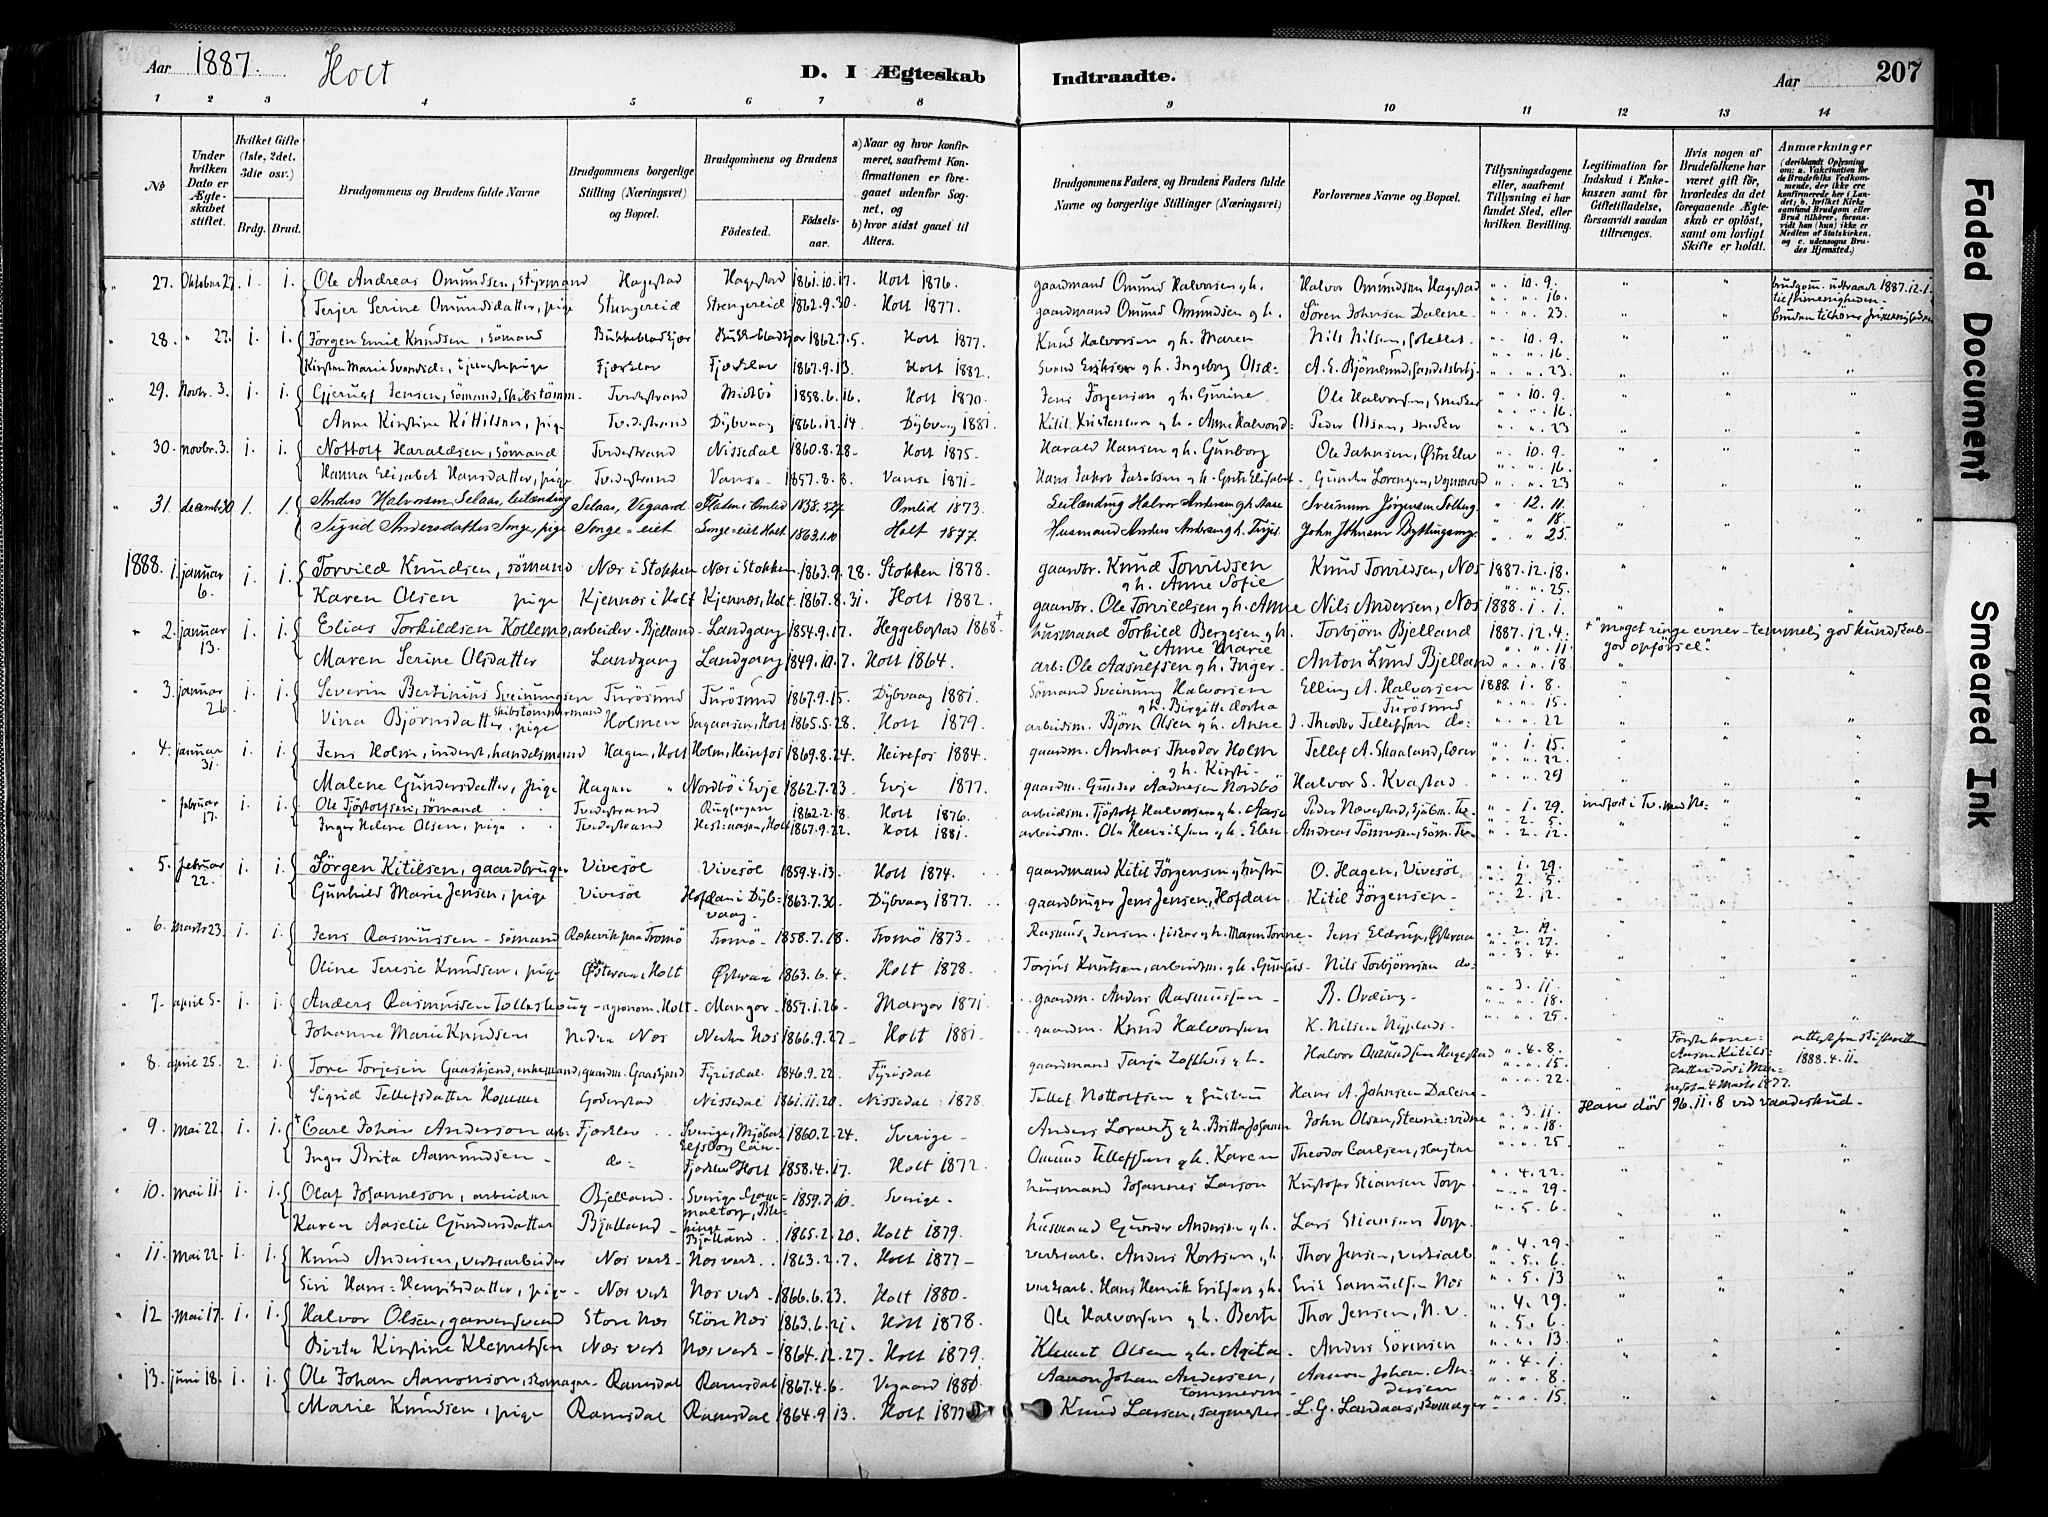 Aar 1887. Holt D. I Ægteskab Indtraadte. Aar 207
1 2 3 4 5 6 7 8 9 10 11 12 13 14
No
Under hvilken Dato er Ægteskabet stiftet.
Hvilket Gifte (1ste, 2det, 3die osv.)
Brdg. Brud.
Brudgommens og Brudens fulde Navne
Brudgommens borgerlige Stilling (Næringsvei) og Bopæl.
Brudgommens og Brudens
Fødested. Fødselsaar.
a) Naar og hvor konfirmeret, saafremt Konfirmationen er foregaaet udenfor Sognet, og
b) hvor sidst gaaet til Alters.
Brudgommens Faders og Brudens Faders fulde Navne og borgerlige Stillinger (Næringsvei)
Forlovernes Navne og Bopæl.
Tillysningsdagene eller, saafremt Tillysning ei har fundet Sted, efter hvilken Bevilling.
Legitimation for Indskud i Enkekassen samt for Giftetilladelse, forsaavidt saadan tiltrænges.
Hvis nogen af Brudefolkene har været gift før, hvorledes da det foregaaende Ægteskab er opløst, samt om lovligt Skifte er holdt.
Anmærkninger
27. Oktober 27. 1. 1. Ole Andreas Omundsen, styrmand Hagestad Hagestad 1861.10.17. Holt 1876. gaardmand Omund Halvorsen g h. Halvor Omundsen Hagestad " 10. 9.
Terjer Serine Omundsdatter, pige Stengereid Strengereid 1862.9.30. Holt 1877. gaardmand Omund Omundsen g h. Sören Johnsen Dalene " " 16. " " 23.
brudgom. udtraadt 1887.12.1.
28. " 27. 1. 1. Jörgen Emil Knudsen, sömand 1862.7.5. Holt 1877. Knud Halvorsen g h. Maren Nils Nilsen, " 10. 9.
Kirsten Marie Fjærkler Fjærkler 1867.9.13. Holt 1882. g h. Ingeborg " " 16. " " 23.
29. Novbr. 3. 1. 1. Jensen, sömand, Skibstömm. Tvedestrand Midtbö 1858.6.16. Holt 1870. Jens Jörgensen g h. Gurine Ole Halvorsen, Snedker " 10. 9.
Anne Kirstine Kittilsen, pige Tvedestrand Dybvaag 1866.12.14 Dybvaag 1881. Kitil Kristensen g h. Anne Halvorsd: Peder Olsen, snedker " " 16. " " 23
30. novbr. 3. 1. 1. Nottolf Haraldsen, sömand Tvedestrand Nissedal 1860.8.28. Holt 1875. Harald Hansen g h. Gunborg Ole Jahnsen, Østre " 10. 9.
Hanna Elisabet Hansdatter, pige Tvedestrand Vanse 1857.8.8. Vanse 1871. Hans Jakob Jakobsen g h. Gunder Lorensen, " " 16. " " 23
31. decemb 30 1. 1. Anders Halvorsen Selaas, leilænding Selaas, Vegaard i Omlid 1858.5.27 Omlid 1873. Leilænding Halvor Andersen g h Aase Sveinum Jörgensen Solberg " 12. 11.
Sigrid Andersdatter Songe, pige Songe-eiet Songe-eiet Holt 1863.1.10 Holt 1877. Husmand Anders Andersen g h. John Johnsen " " 18. " " 25.
1888. 1. januar 6. 1. 1. Torvild Knudsen, sömand Næs i Stokken Næs i Stokken 1863.9.28. Stokken 1878. gaardbr. Knud Torvildsen g h. Anne Sofie Knud Torvildsen, Næs 1887. 12. 18.
Karen Olsen pige Kjennæs i Holt Kjennæs, Holt 1867.8.31. Holt 1882. gaardbr. Ole Torvildsen g h. Anne Nils Andersen, Næs " " 25. 1888. 1. 1.
2. januar 13. 1. 1. Elias Torkildsen Kollemo, arbeider Bjelland Landgang 1854.9.17. Heggebostad 1868+ husmand Torkild Bergesen g h. Anne Marie Torbjörn Bjelland 1887. 12. 4.
+"meget ringe evner - temmelig god kundskab - god opförsel".
Maren Serine Olsdatter Landgang Landgang 1849.10.7. Holt 1864. arb: Ole Aasulfsen g h. Inger Anton Lund Bjelland " " 11. " " 18.
3. januar 26. 1. 1. Severin Bertinius Sveinungsen Skibstömmermand Furösund Furösund 1867.9.15. Dybvaag 1881. Sömand Sveinung Halvorsen g h. Birgitte Dortea Elling A. Halvorsen Furösund 1888. 1. 8.
Vina Björnsdatter, pige Holmen Sagaasen, Holt 1865.5.28. Holt 1879. arbeidsm. Björn Olsen g h. Anne J. Theodor Tellefsen do- " " 15. " " 22
4. januar 31. 1. 1. Jens Holm, inderst. handelsmand Hagen, Holt Holm, Heirefos 1869.8.24. Heirefos 1884. gaardm. Andreas Theodor Holm g h. Kirsti Tellef A. Skaaland, " 1. 15.
Malene Gundersdatter, pige Hagen " Nordbö i Evje 1862.7.23. Evje 1877. gaardm. Gunder Aadnesen Nordbö Halvor S. Kvastad " " 22. " " 29
" februar 17. 1. 1. Ole Tjöstolfsen, sömand Tvedestrand 1862.2.18. Holt 1876. arbeidsm. Tjöstolf Halvorsen g h. Aase Peder Nævestad, " 1. 29. indfört i Tv.
Inger Helene Olsen, pige Tvedestrand Holt 1867.9.22. Holt 1881. arbeidsm. Ole Henriksen g h. Elen Andreas Tönnesen, " 2. 5. " 2. 12.
5. februar 22. 1. 1. Jörgen Kitilsen, gaardbruger Vivesöl Vivesöl 1859.4.13. Holt 1874. gaardmand Kitil Jörgensen g hustru O. Hagen, Vivesöl " 1. 29.
Gunhild Marie Jensen, pige Vivesöl Hofdan i Dybvaag 1863.7.30. Dybvaag 1877. gaardbruger Jens Jensen, Hofdan Kitil Jörgensen " 2. 5. " 2. 12
6. Marts 23. 1. 1. Jens Rasmussen - sömand paa Tromö Tromö 1858.7.18. Tromö 1873. Rasmus Jensen, fisker g h. Maren Jens Eldrup, " 2. 19.
Oline Teresie Knudsen, pige Østeraa, Holt Østeraa 1863.6.4. Holt 1878. Torjus Knutsen, arbeidsm. g h. Nils Torbjörnsen do- " " 27. " 3. 4.
7. april 5. 1. 1. Anders Rasmussen - agronom. Holt Mangor 1857.1.26. Mangor 1871 gaardm. Anders Rasmussen B. " 3. 11.
Johanne Marie Knudsen Nedre Næs Nedre Næs 1866.9.27. Holt 1881. gaardm. Knud Halvorsen K. Nilsen Nypladsen " " 18. " " 25
8. april 25. 2. 1. Tore Torjesen Gaaskjend, enkemand, gaardm. Gaaskjend Fyrisdal. 1846.9.22. Fyrisdal gaardmand Tarje g h. Halvor Omundsen Hagestad " 4. 8.
Förstekone: 1888.4.11.
Sigrid Tellefsdatter Homme Goderstad Nissedal 1861.11.20. Nissedal 1878. Tellef Nottolfsen g Hustru Hans A. Johnsen Dalene " " 15. " " 22.
Hans död 96.11.8 ved vaadeskud.
9. Mai 22. 1. 1. +Carl Johan Anderson arb: Fjærkler Sverige, 1860.2.24. Sverige Anders Lorentz g h. Britta Johanna John Olsen, " 3. 11.
Inger Brita Aamundsen do- Fjærkler Holt 1858.4.17. Holt 1872. Omund Tellefsen g h. Karen Theodor Carlsen, " " 18. " " 25
10. Mai 11. 1. 1. Olaf Johanneson, arbeider Bjelland Sverige 1859.7.10. Sverige husmand Johannes Larson Kristofer Stiansen Torp " 4. 22.
Karen Aaselie Gundersdatter Bjelland Bjelland 1865.2.20. Holt 1879. husmand Gunder Andersen g h. Lars Stiansen Torp " " 29. " 5. 6.
11. Mai 22. 1. 1. Knud Andersen, verksarbeider Næs verk Næs verk 1863.2.7. Holt 1877 verksarb. Anders g h. Thor Jensen, verksarb " 4. 29.
Siri Hans-Henriksdatter, pige Næs verk Næs verk 1866.6.23. Holt 1880. verksarb. Hans Henrik Eriksen g h. Erik Samuelsen Næs " 5. 6. " 5. 13
12. Mai 17. 1. 1. Halvor Olsen, garversvend Store Næs Store Næs 1863.6.21. Holt 1878. Ole Halvorsen g h. Berte Thor Jensen, N. v. " 4. 29.
Birte Kirstine Klemetsen Næs verk Næs verk 1864.12.27. Holt 1879. Klemet Olsen g h. Agita Anders Sörensen " 5. 6. " " 13
13. juni 18. 1. 1. Ole Johan Aanonson, skomager Ramsdal Ramsdal 1867.4.6. Vegaard 1881 Aanon Johan Andersen, tömmerm. Aanon Johan Andersen " 4. 1.
Marie Knudsen, pige Ramsdal Ramsdal 1864.9.13. Holt 1877 Knud Larsen, sagmester L. G. Landaas, skomager " " 8. " " 15.
Faded Document
Smeared Ink